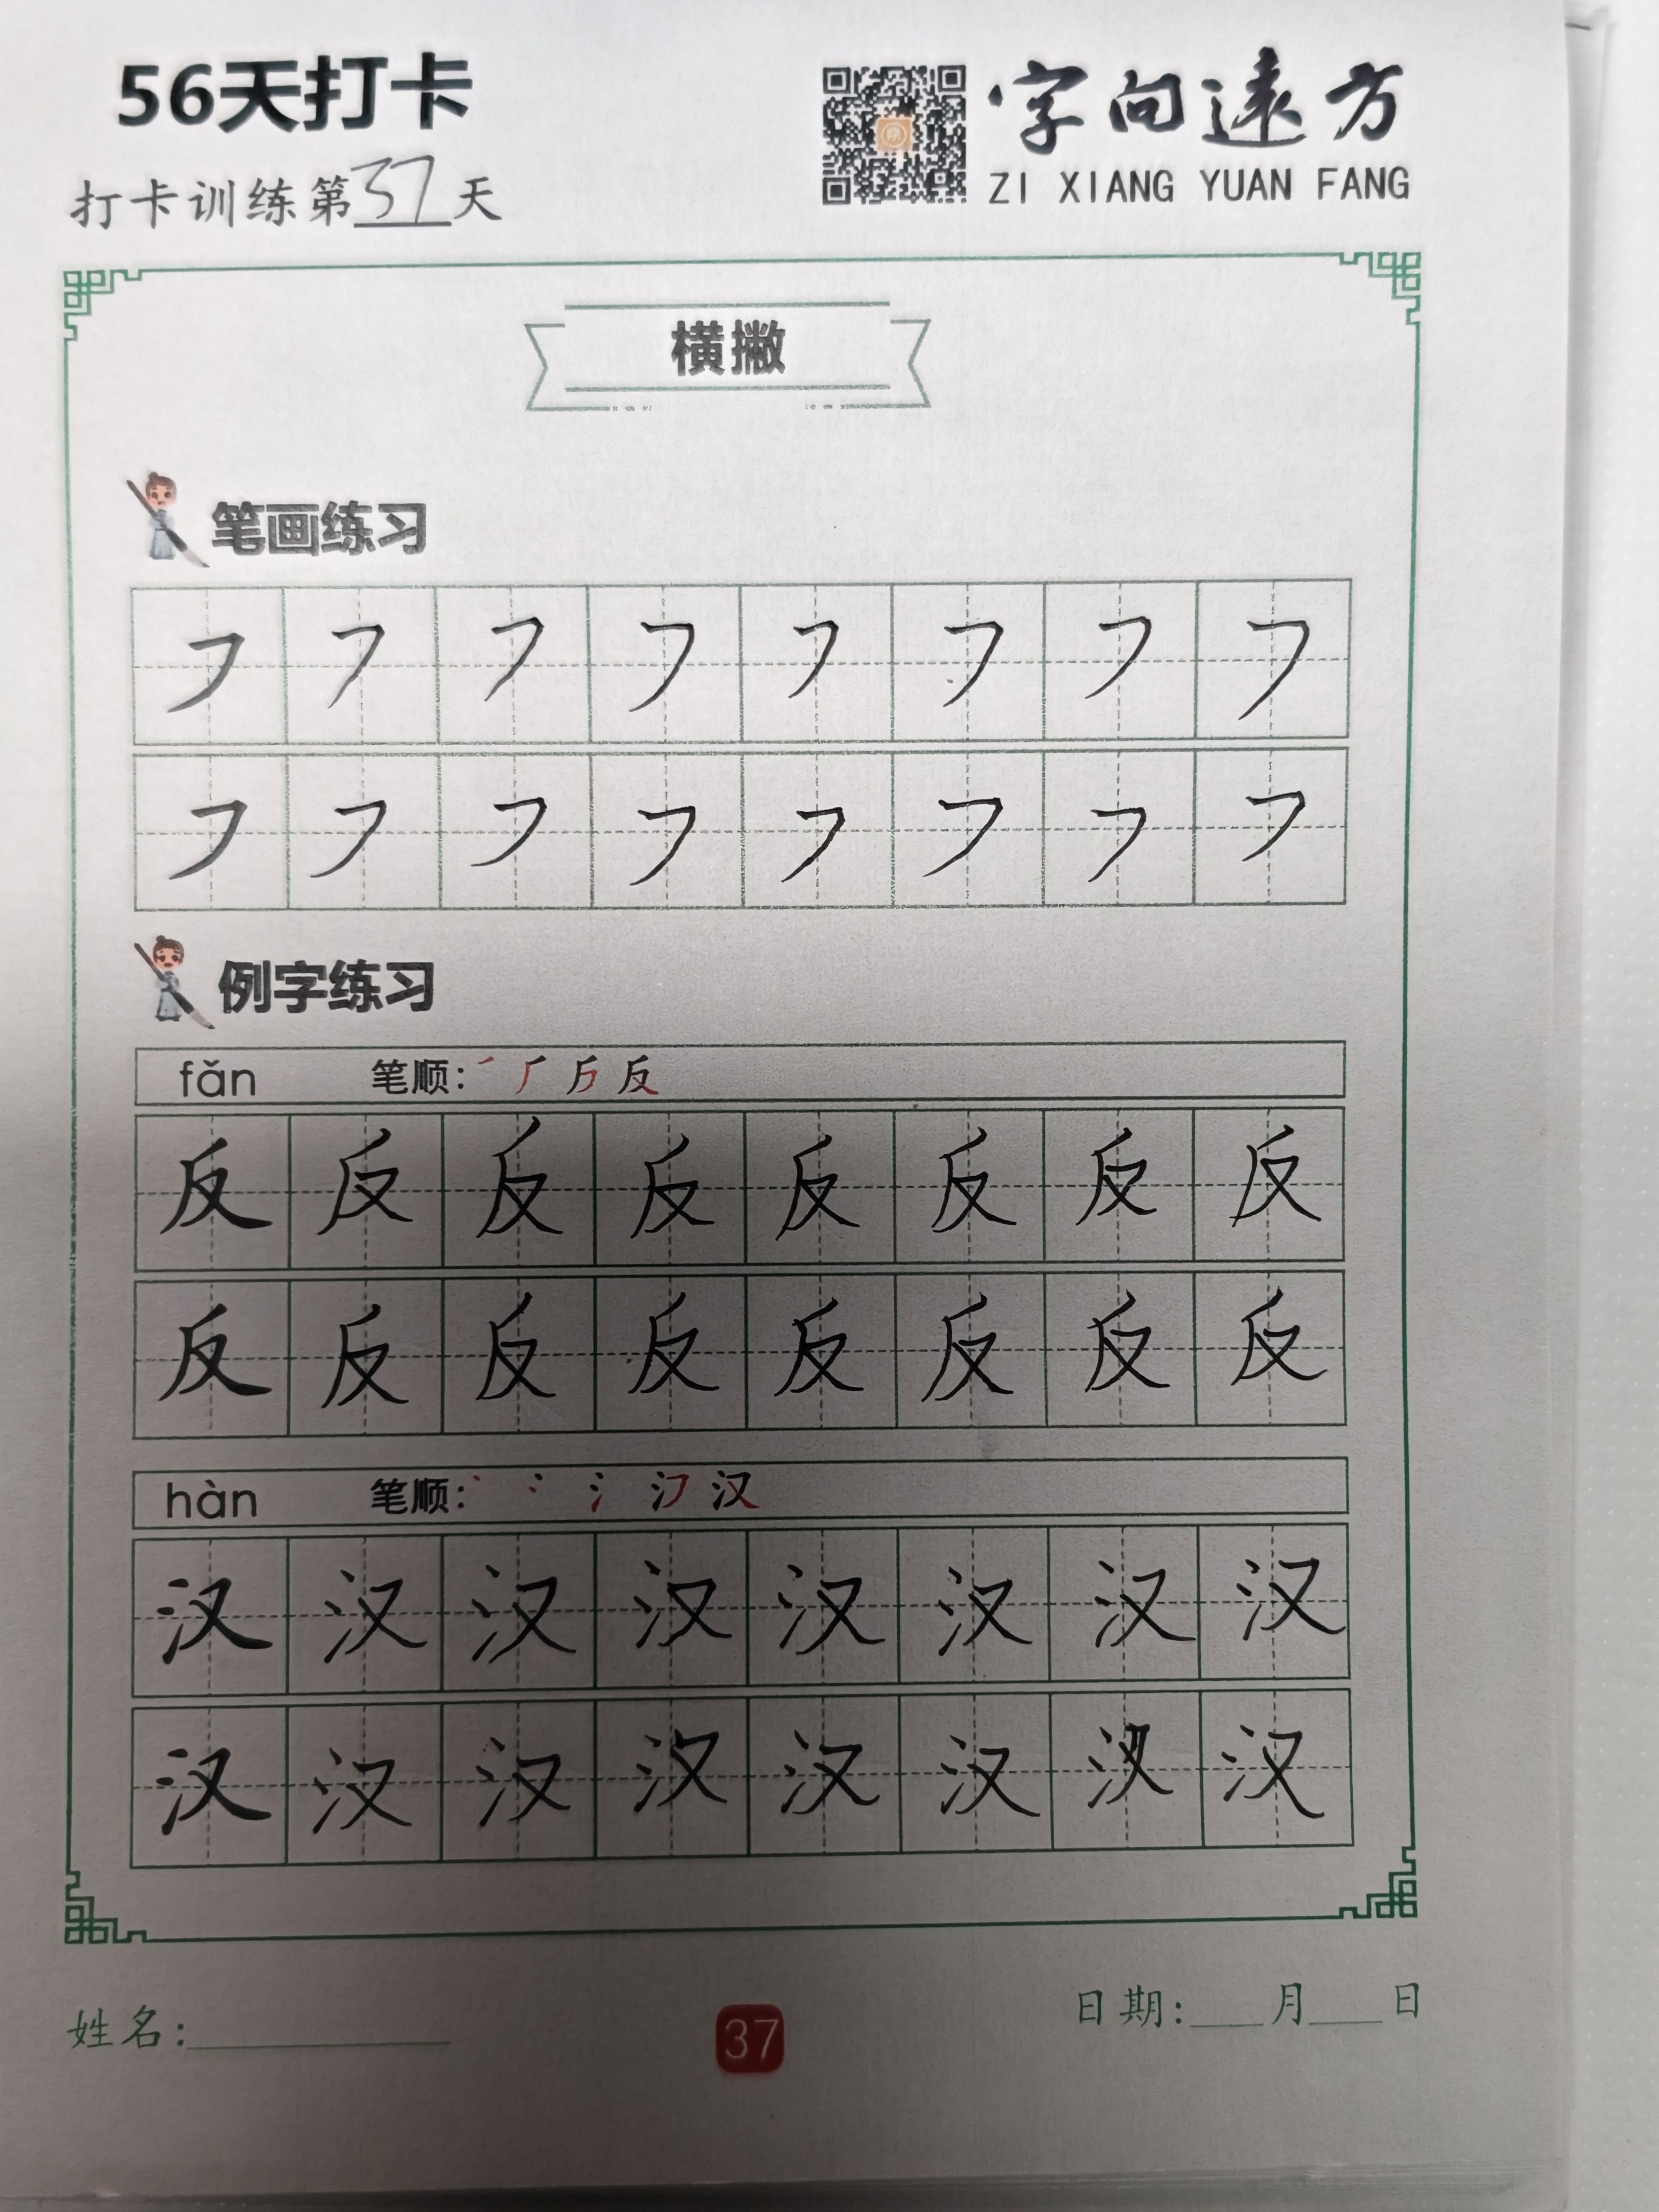 56天打卡
字向遠方
打卡训练第37天
ZI XIANG YUAN FANG
横撇
笔画练习
㇇㇇㇇㇇㇇㇇㇇㇇
㇇㇇㇇㇇㇇㇇㇇㇇
例字练习
fǎn 笔顺: 反
反反反反反反反反
反反反反反反反反
hàn 笔顺: 汉
汉汉汉汉汉汉汉汉
汉汉汉汉汉汉汉汉
姓名:
37
日期:___月___日